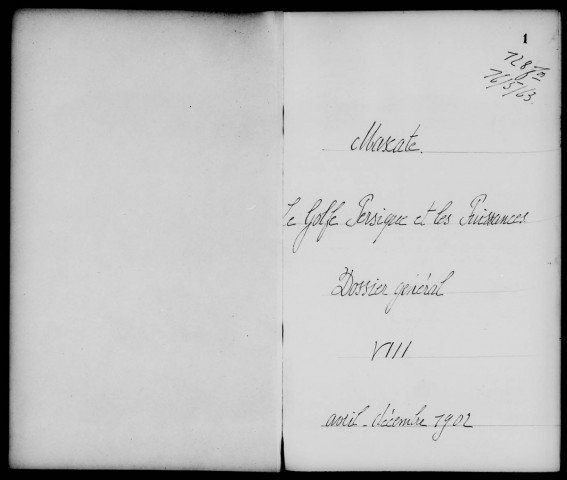 1
128 fm
16/5/63.
Mascate.
Le Golfe Persique et les Puissances
Dossier général
VIII
avril - décembre 1902